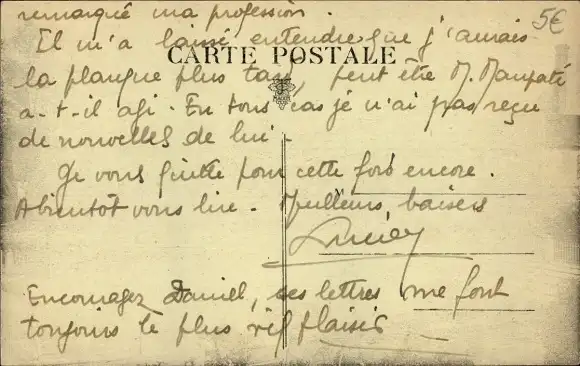 remarqué ma profession.
5€
Il m'a laissé entendre que j'aurais
CARTE POSTALE
la planque plus tard, peut être M. Maupaté
a-t-il agi. En tous cas je n'ai pas reçu
de nouvelles de lui.
Je vous quitte pour cette fois encore.
A bientôt vous lire. Meilleurs baisers
Lucien
Encouragez Daniel, ses lettres me font
toujours le plus vif plaisir